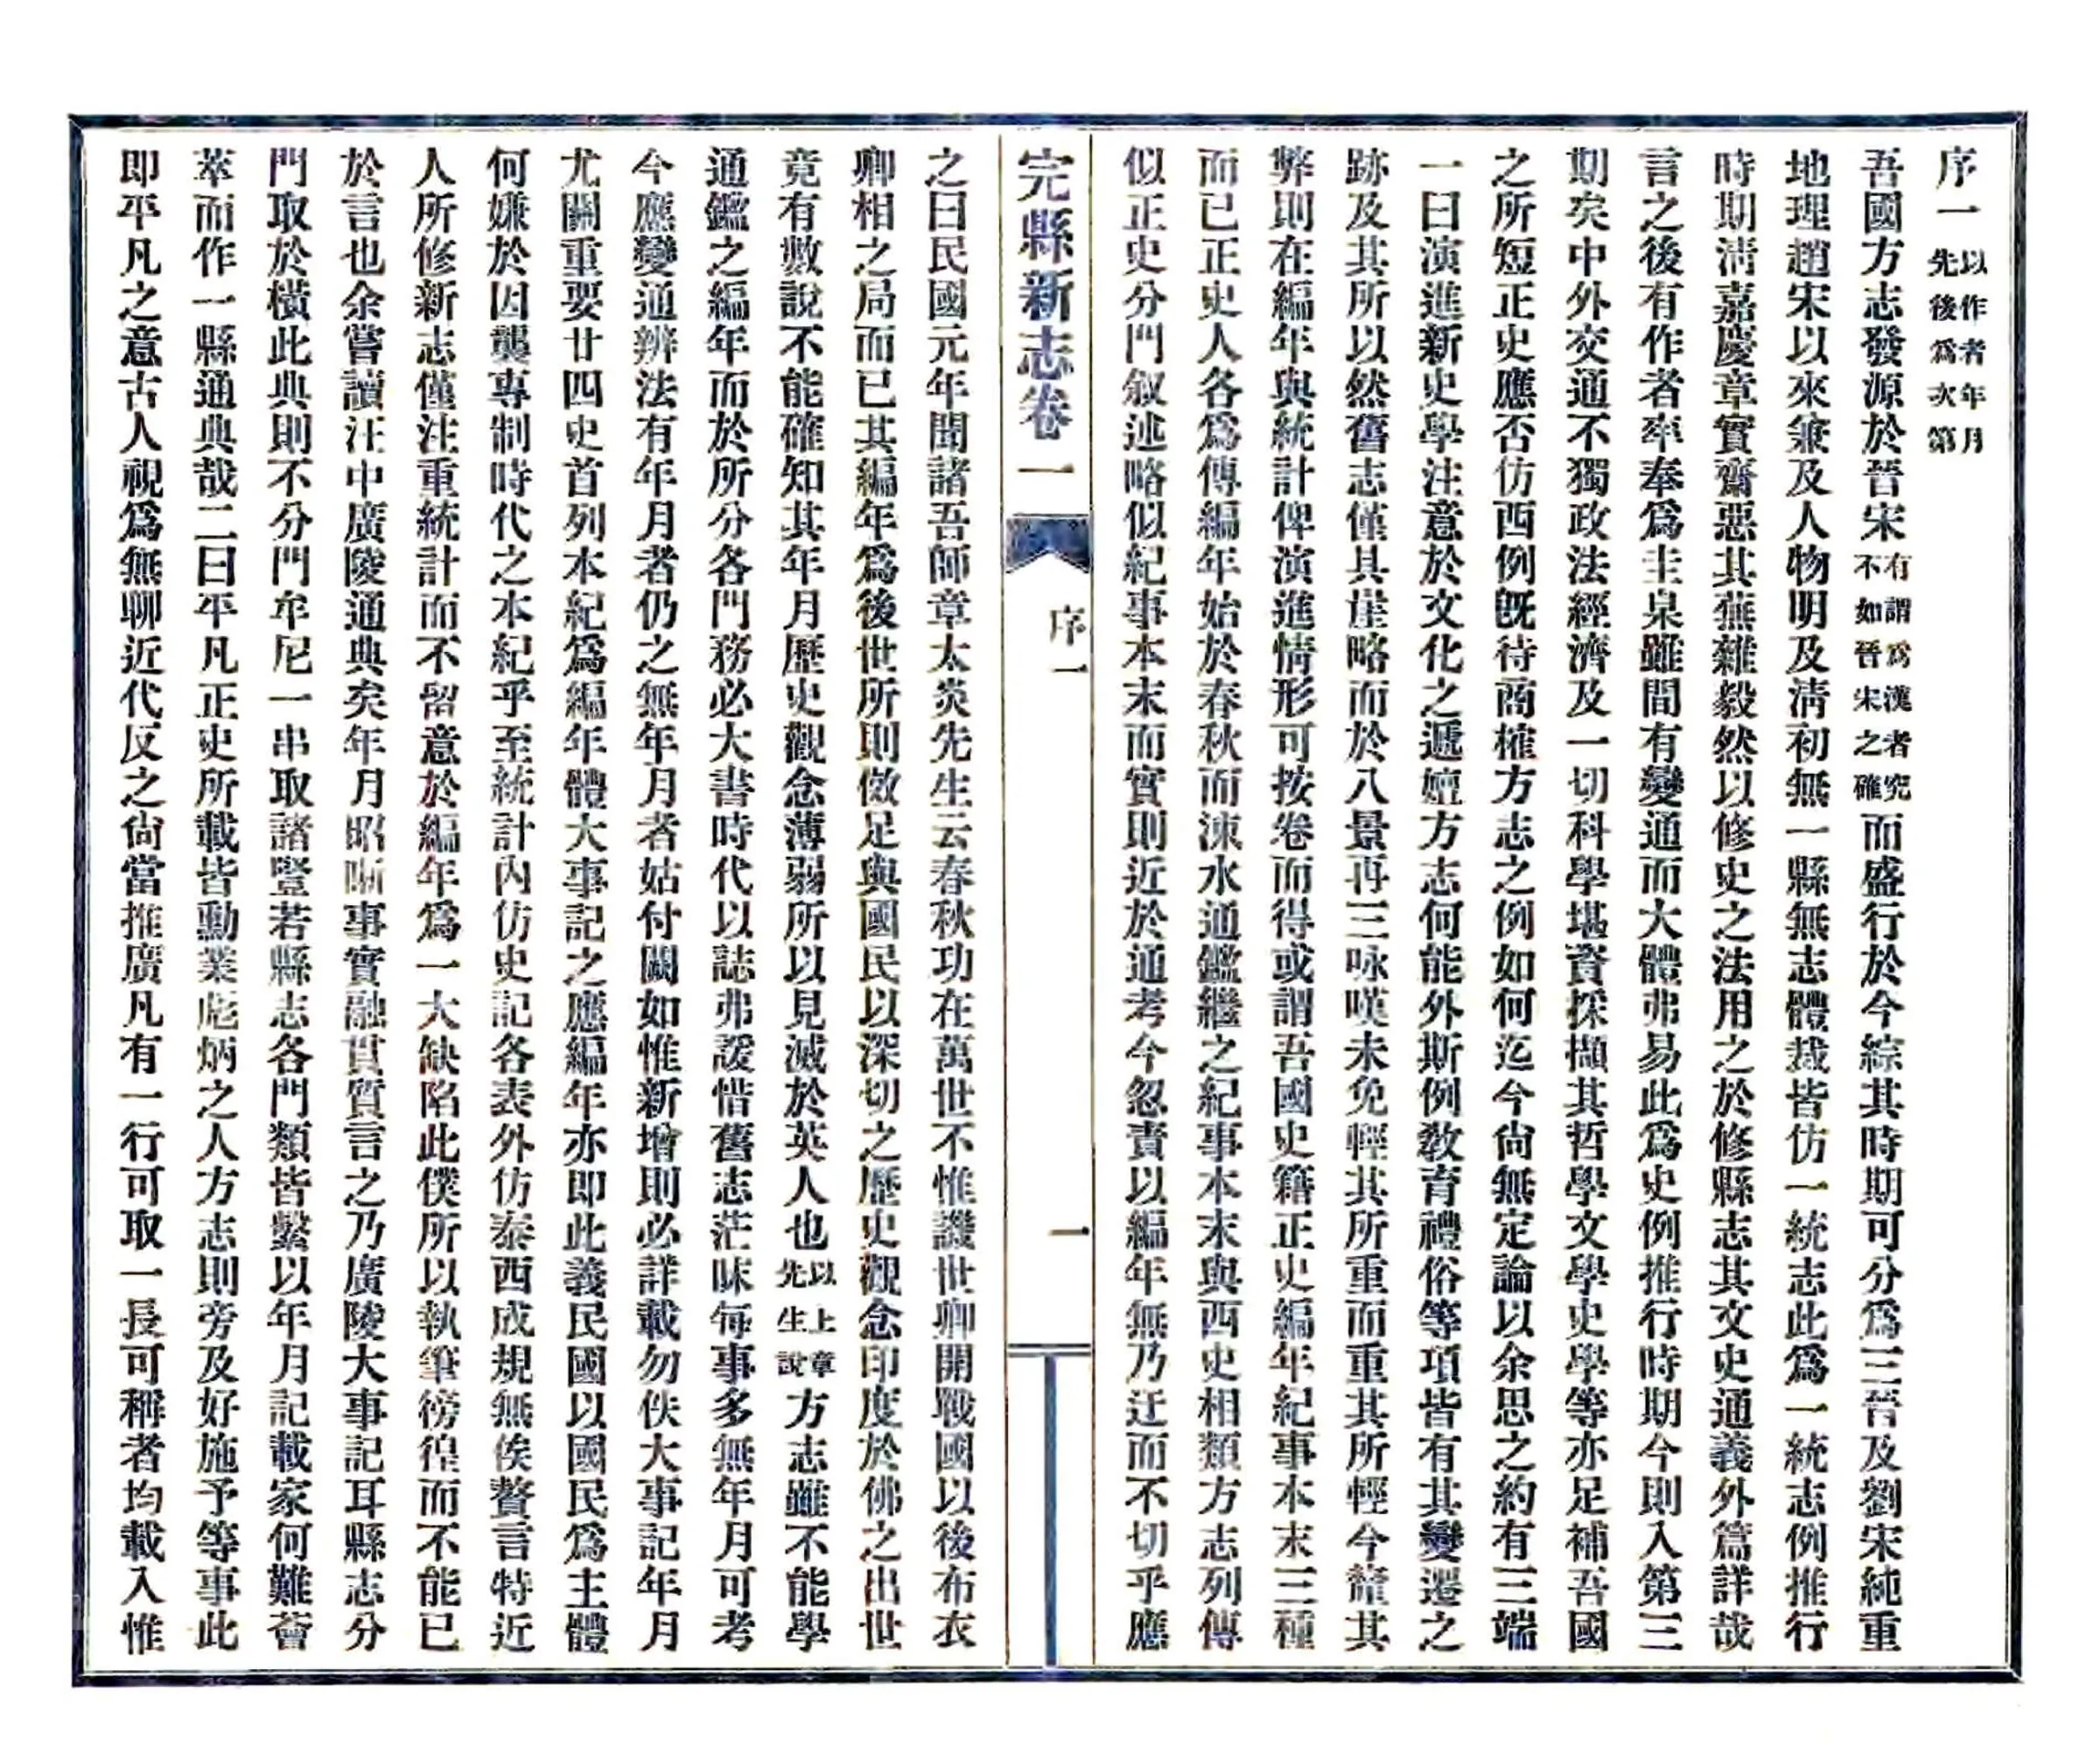 序一 以作者年月先後爲次第
吾國方志發源於晉宋有謂爲漢者究不如晉宋之確而盛行於今綜其時期可分爲三晉及劉宋純重
地理趙宋以來兼及人物明及清初無一縣無志體裁皆仿一統志此爲一統志例推行
時期清嘉慶章實齋惡其蕪雜毅然以修史之法用之於修縣志其文史通義外篇詳哉
言之後有作者率奉爲圭臬雖間有變通而大體弗易此爲史例推行時期今則入第三
期矣中外交通不獨政法經濟及一切科學堪資採擷其哲學文學史學等亦足補吾國
之所短正史應否仿西例旣待商榷方志之例如何迄今尙無定論以余思之約有三端
一曰演進新史學注意於文化之遞嬗方志何能外斯例敎育禮俗等項皆有其變遷之
跡及其所以然舊志僅具崖略而於八景再三咏嘆未免輕其所重而重其所輕今龍其
弊則在編年與統計俾演進情形可按卷而得或謂吾國史籍正史編年紀事本末三種
而已正史人各爲傳編年始於春秋而涑水通鑑繼之紀事本末與西史相類方志列傳
似正史分門叙述略似紀事本末而實則近於通考今忽責以編年無乃迂而不切乎應
完縣新志卷一
序一
一
之曰民國元年聞諸吾師章太炎先生云春秋功在萬世不惟譏世卿開戰國以後布衣
卿相之局而已其編年爲後世所則傚足與國民以深切之歷史觀念印度於佛之出世
竟有數說不能確知其年月歷史觀念薄弱所以見滅於英人也以上章先生說方志雖不能學
通鑑之編年而於所分各門務必大書時代以誌弗諼惜舊志茫昧每事多無年月可考
今應變通辨法有年月者仍之無年月者姑付闕如惟新增則必詳載勿佚大事記年月
尤關重要廿四史首列本紀爲編年體大事記之應編年亦即此義民國以國民爲主體
何嫌於因襲專制時代之本紀乎至統計內仿史記各表外仿泰西成規無俟贅言特近
人所修新志僅注重統計而不留意於編年爲一大缺陷此僕所以執筆徬徨而不能已
於言也余嘗讀汪中廣陵通典矣年月昭晰事實融貫質言之乃廣陵大事記耳縣志分
門取於橫此典則不分門牟尼一串取諸豎若縣志各門類皆繫以年月記載家何難薈
萃而作一縣通典哉二曰平凡正史所載皆勳業彪炳之人方志則旁及好施予等事此
即平凡之意古人視爲無聊近代反之尙當推廣凡有一行可取一長可稱者均載入惟